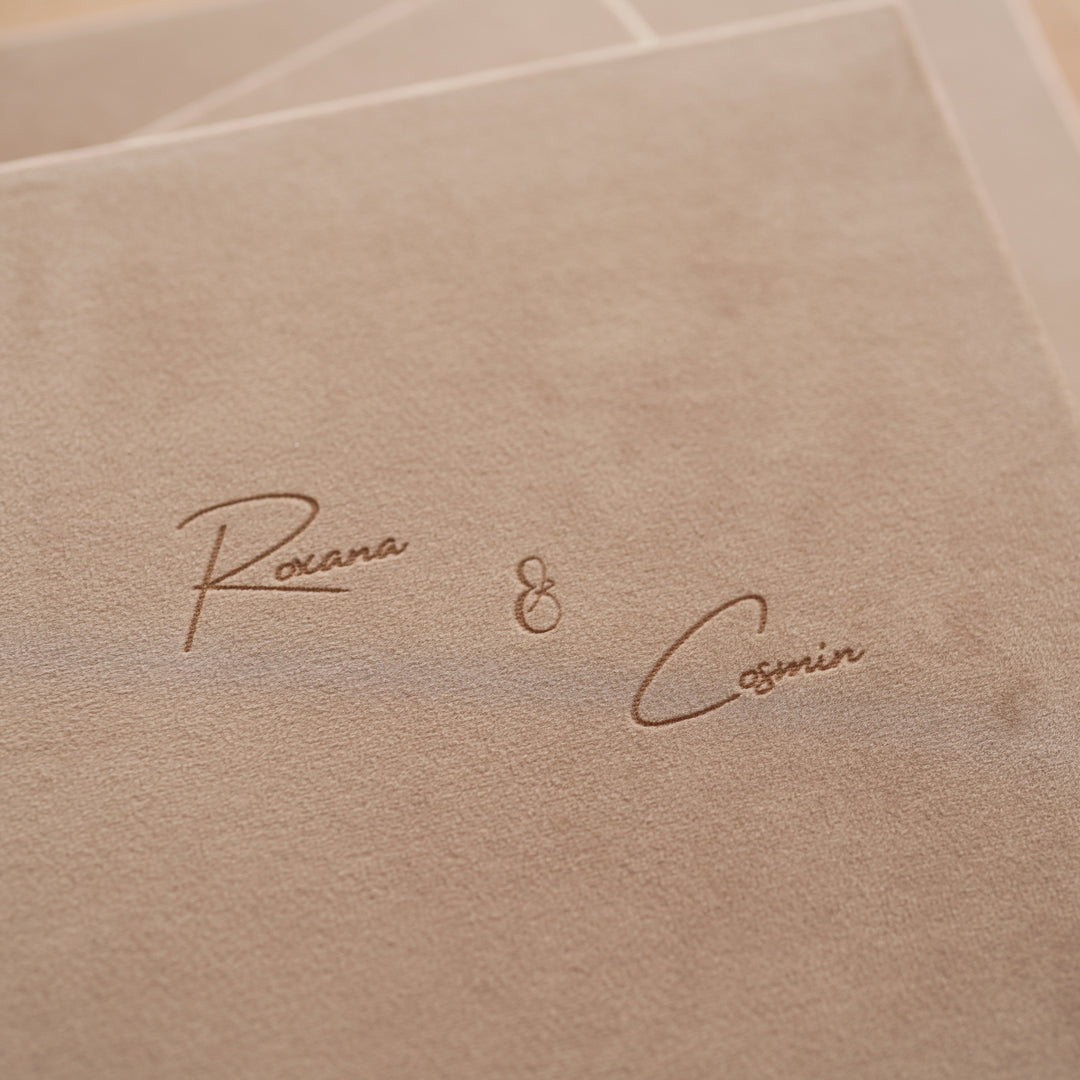 Roxana & Cosmin